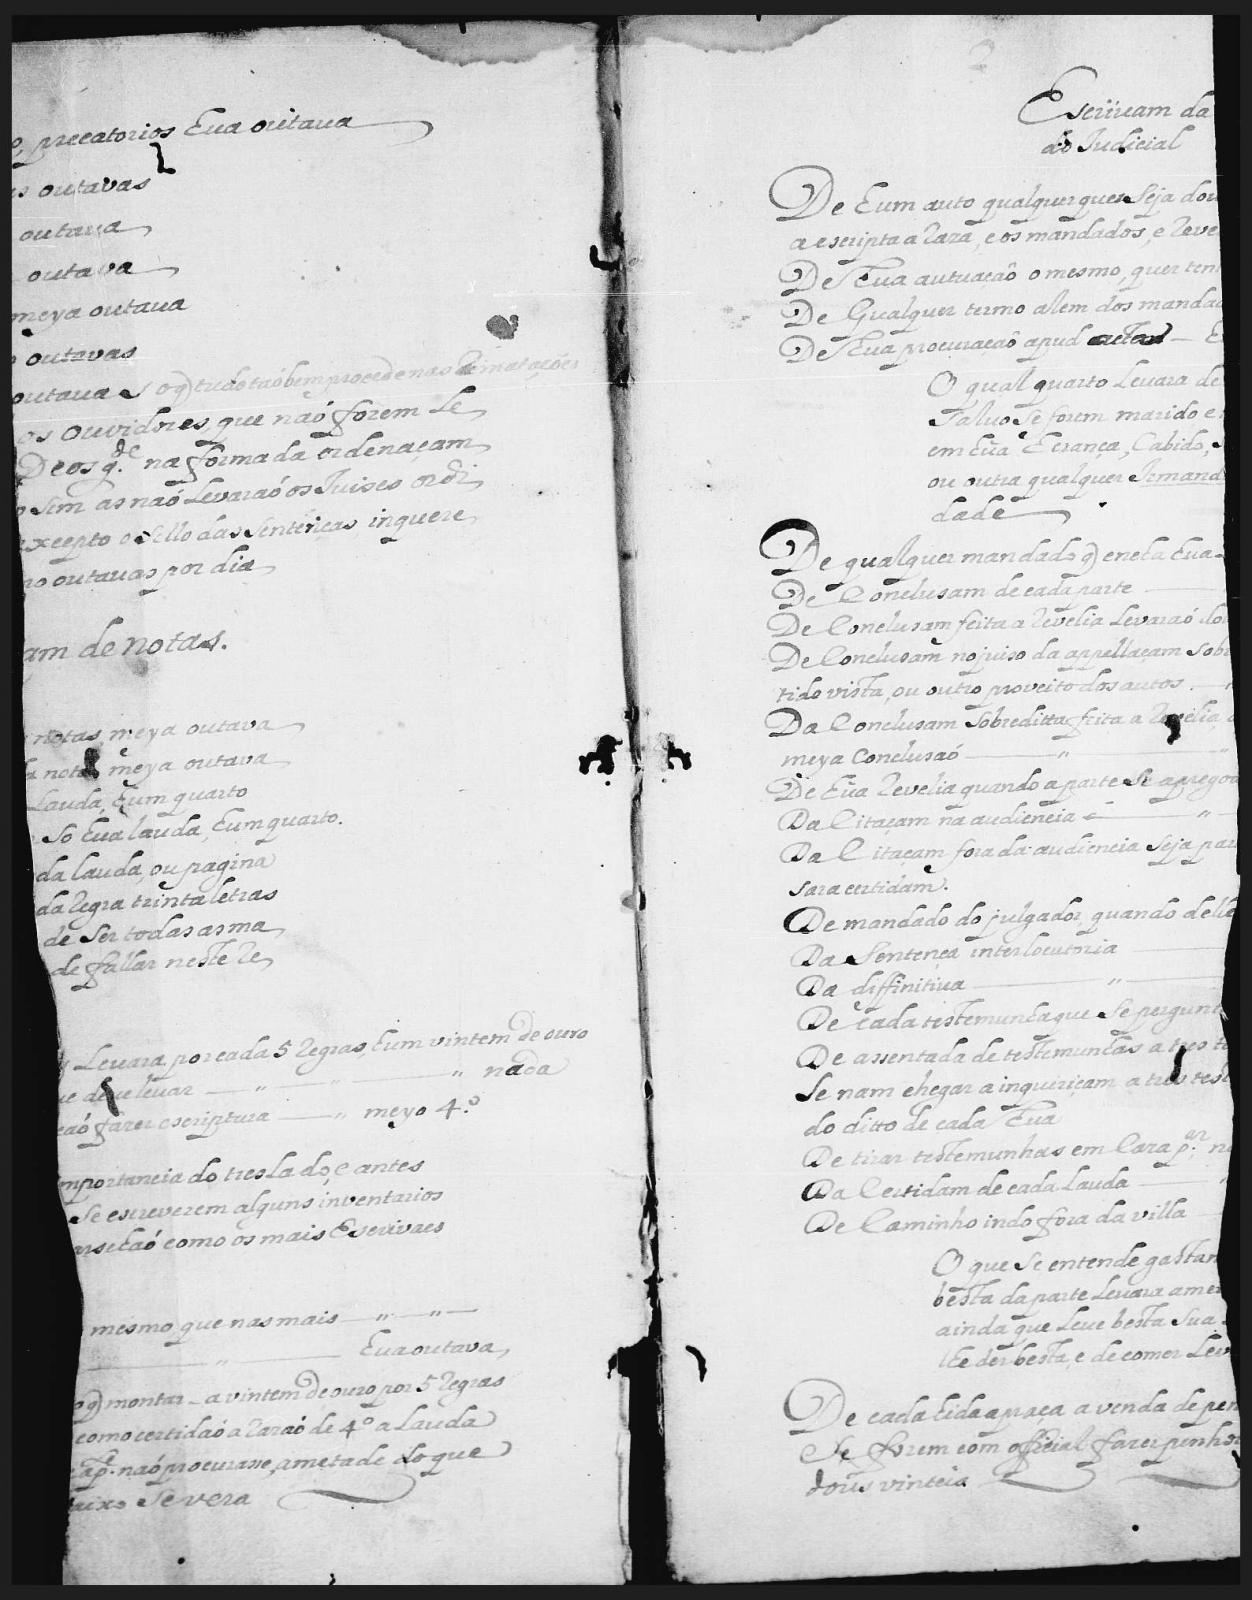 precatorios hua outaua
outavas
outaua
outava
meya outaua
outavas
outaua so oq tudo taóbem procede nas Rematações
os ouvidores, que naó forem Le
Deos g.de na forma da ordenaçam
sim as naó Levaraó os Juises ordi
excepto o Sello das Sentenças inquere
outauas por dia
am de notas.
notas meya outava
nota meya outava
Lauda, hum quarto
so hua lauda, hum quarto.
da lauda, ou pagina
da Regra trinta letras
de ser todas as ma
de fallar neste Re
Leuara por cada 5 Regras, hum vintem de ouro
leuar — " — " — " nada
faser escriptura — " meyo 4.º
mportancia do treslado, e antes
Se escreverem alguns inventarios
como os mais Escrivaes
mesmo que nas mais — " — " —
— " — hua outava
q montar — a vintem de ouro por 5 Regras
como certidaó a Razaó de 4º a Lauda
naó procurasse, ametade do que
aixo Severa
Escriuam da
do Judicial
De hum auto qualquer que Seja dou
a escripta a Raza, e os mandados, e Reve
De hua autuacaõ o mesmo, quer ten
De Qualquer termo allem dos mandad
De hua procuraçaõ apud actas —
O qual quarto Levara de
Saluo Se forem marido e
em hũa Erança, Cabido,
ou outra qualquer Irmand
dade
De qualquer mandado q enelha hua
De Conclusam de cada parte —
De Conclusam feita a Revelia Levaraó do
De Conclusam no juiso da appellaçam Sobr
tido vista, ou outro proveito dos autos —
Da Conclusam Sobreditta feita a Revelia
meya Conclusaó — " — "
De hũa Revelia quando a parte Se apregoa
Da Citaçam na audiencia — " —
Da Citaçam fora da audiencia Seja par
sara certidam.
De mandado do julgador, quando delle
Da Sentença interlocutoria —
Da diffinitiua — " —
De cada testemunha que Se pergunt
De assentada de testemunhas a tres te
Se nam chegar a inquiriçam a tres test
do ditto de cada hua
De tirar testemunhas em Caza p.ar
Da Certidam de cada Lauda —
De Caminho indo fora da villa
O que Se entende gastan
besta da parte Levara ame
ainda que Leve besta Sua
lhe der besta, e de comer Lev
De cada hida a praça a venda de pen
Se forem com official faser penhor
dous vinteis